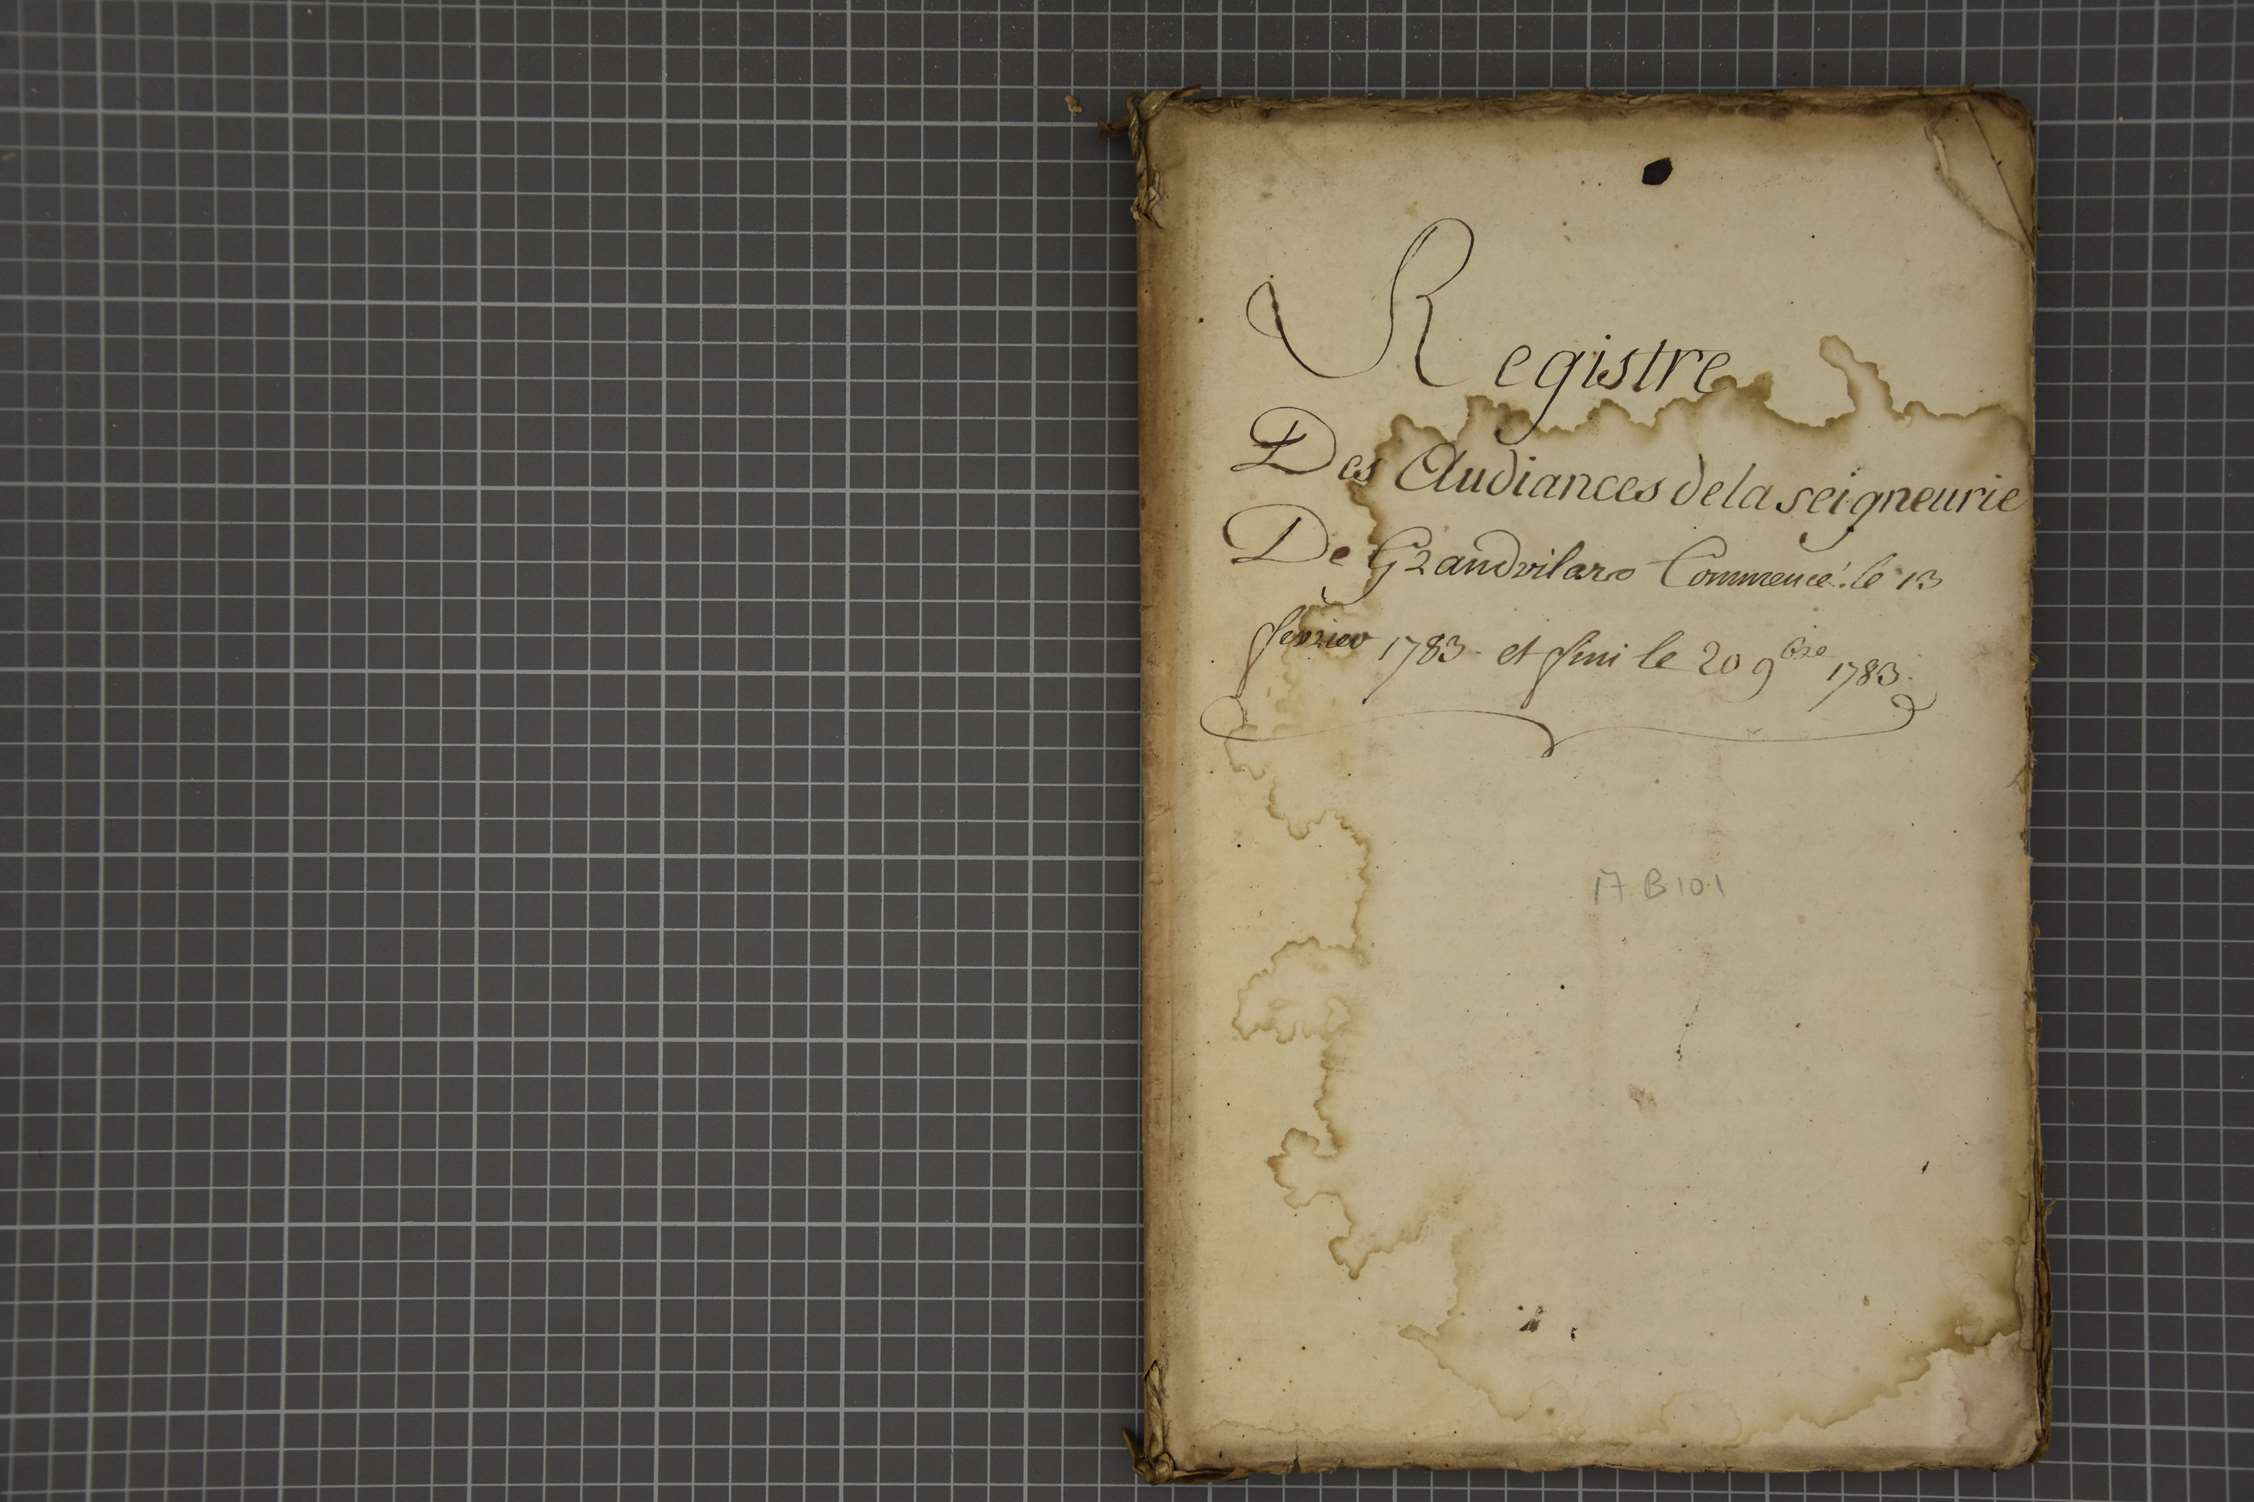 Registre
Des Audiances de la seigneurie
De Grandvilars Commencé le 13
fevrier 1783. et fini le 20 9bre 1783.
17 B 101